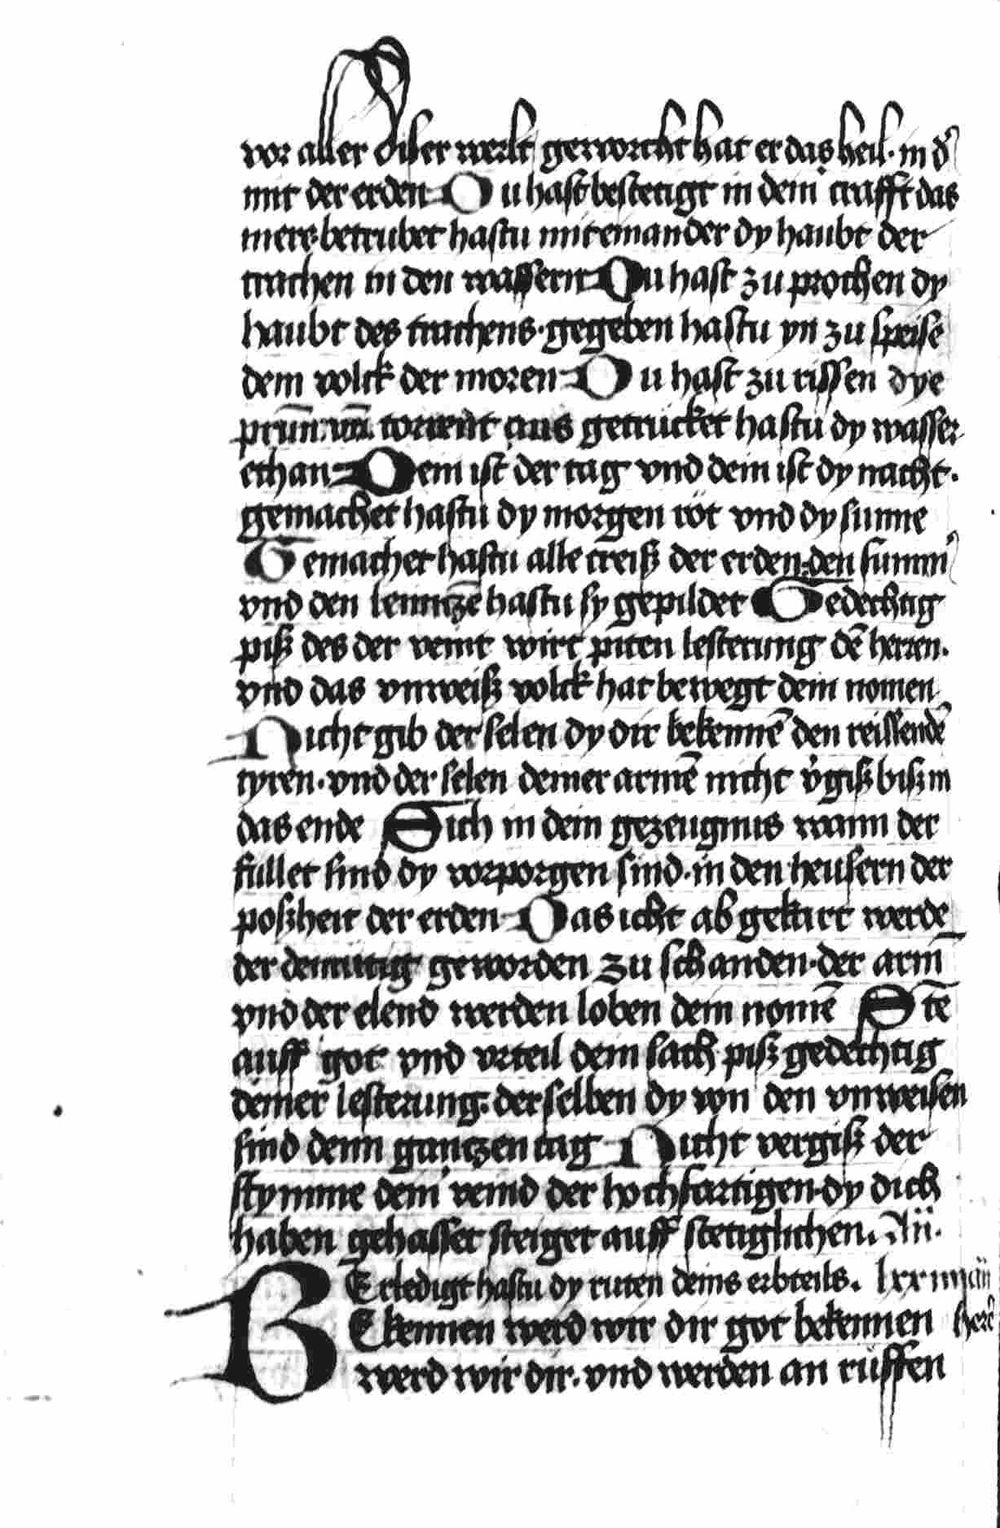 vor aller diser werlt geworcht hat er das heil· in d̕
mit der erden Du hast bestetigt in dein̕ crafft das
mere· betrubet hastu mit einander dy haubt der
trachen in den wassern Du hast zu prochen dy
haubt des trachens· gegeben hastu yn zu speise
dem volck der moren Du hast zu rissen dye
prūn· vn̄ torrent aus getrucket hastu dy wasser
ethan Dein ist der tag vnd dein ist dy nacht·
gemachet hastu dy morgen röt vnd dy sunne
Gemachet hastu alle creiß der erden· den summ̕
vnd den lenntzē hastu sy gepildet Gedechtig
piß des der veint wirt piten lesterung dē herren·
vnd das vnweiß volck hat bewegt dein nomen
Nicht gib der selen dy dir bekennē den reissendē
tyren· vnd der selen deiner armē nicht v̕giß biß in
das ende Sich in dein gezeugnus wann der
fullet sind dy vorporgen sind· in den heusern der
poßheit der erden Das icht ab gekirt werde
der demutig geworden zu schanden· der arm
vnd der elend werden loben dein nomē Stē
auff got vnd vrteil dein sach piß gedechtig
deiner lesterung· derselben dy von den vnweisen
sind denn gantzen tag Nicht vergiß der
stymme dein̕ veind der hochfartigen· dy dich
haben gehasset steiget auff stetiglichen. An̄·
Erledigt hastu dy ruten deins erbteils. lxxiiij
BEkennen werd wir dir got bekennen
werd wir dir· vnd werden an rüffen